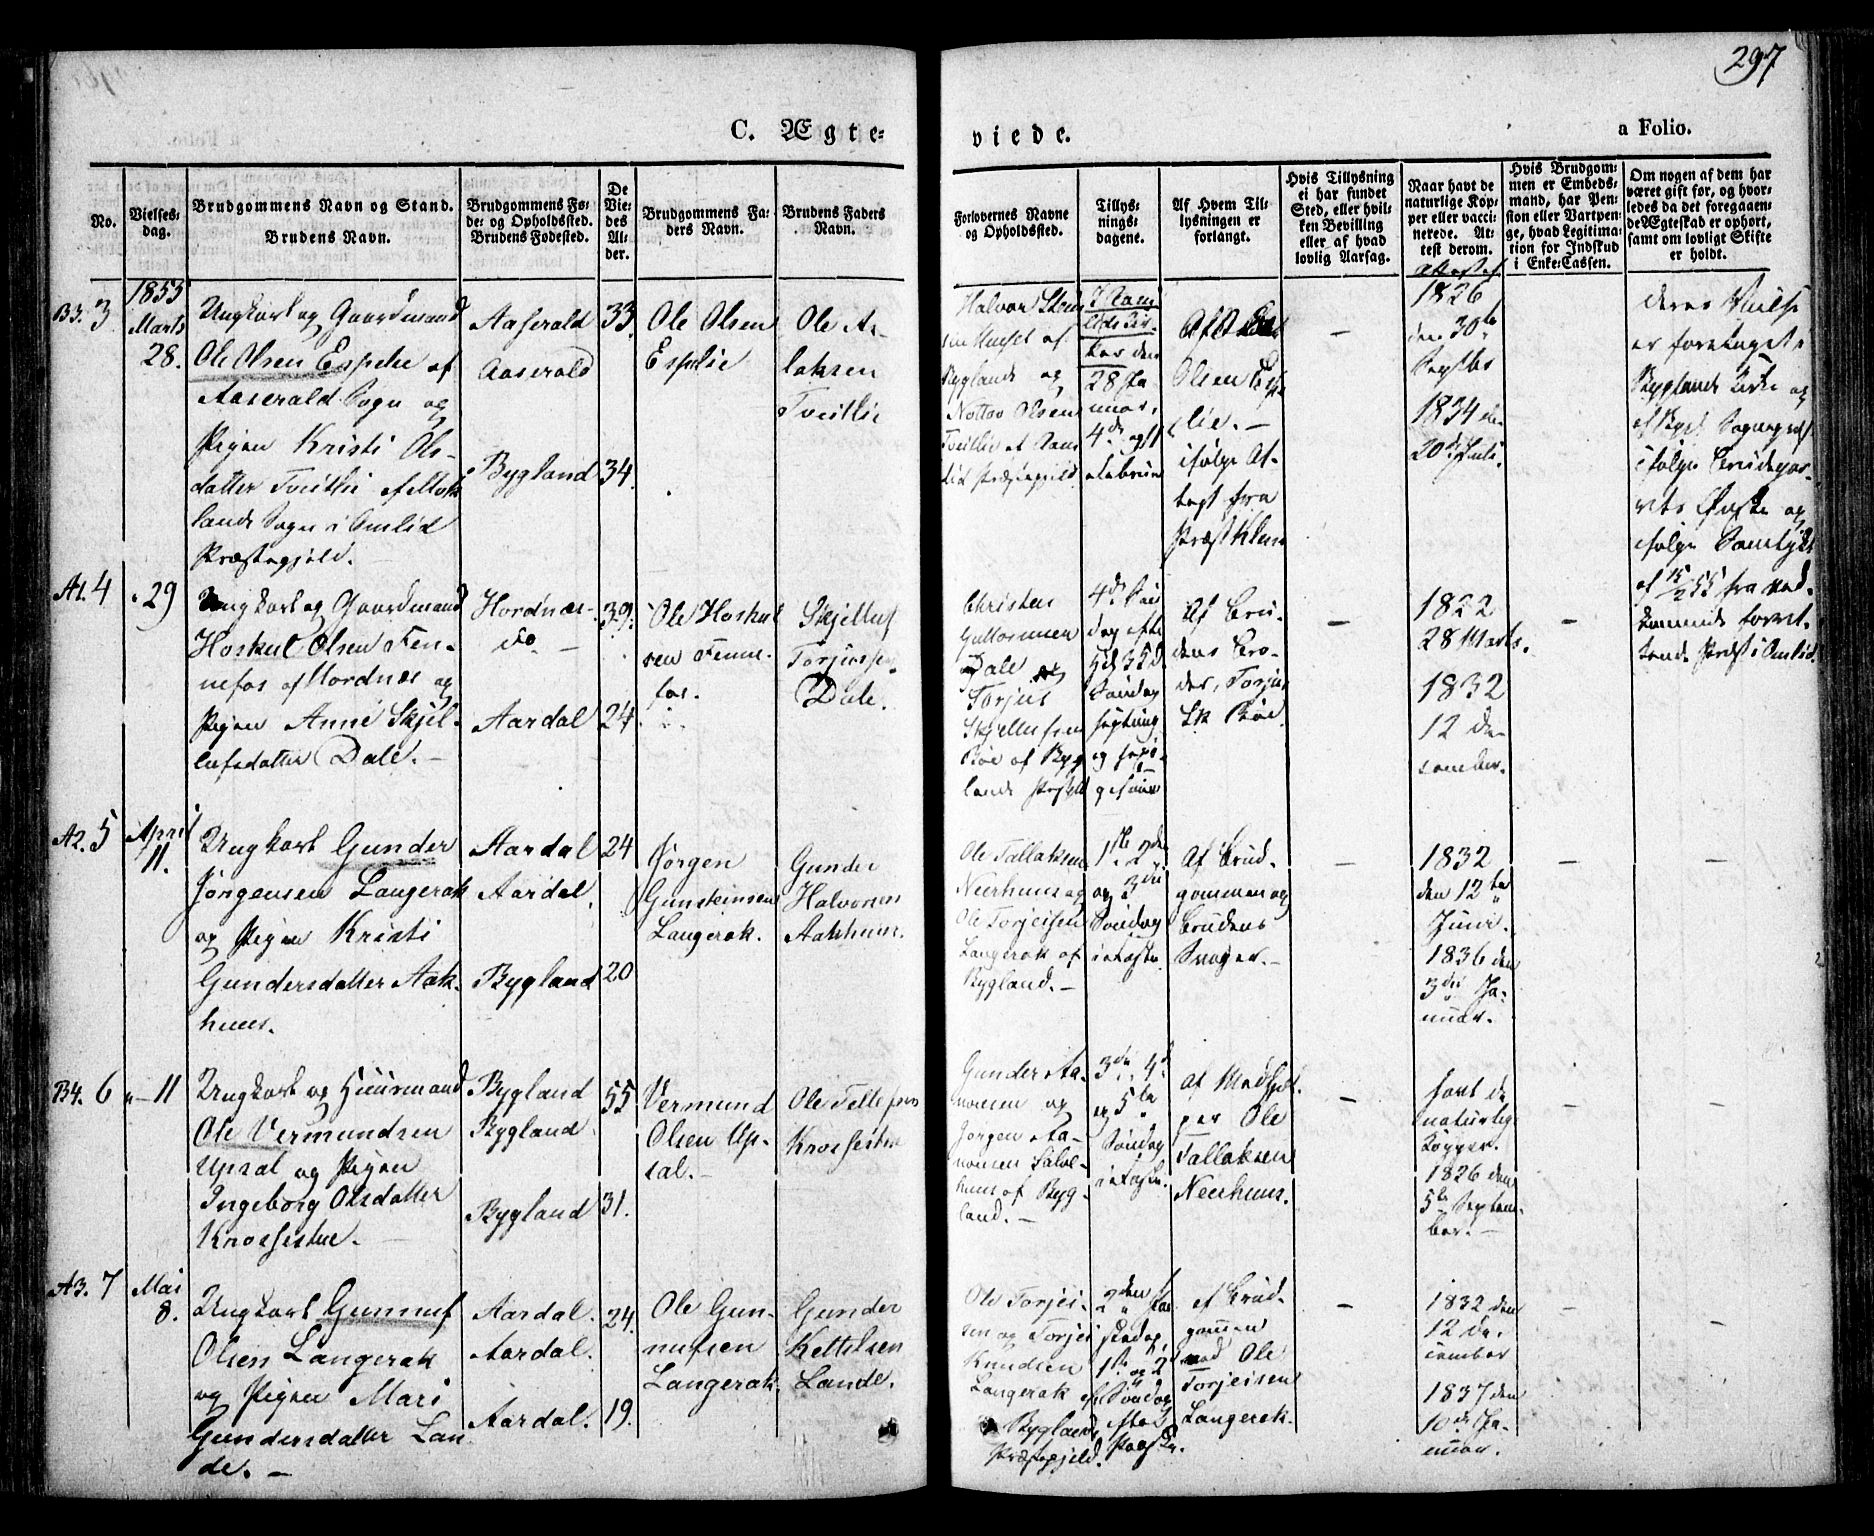 297
C. Ægte-
viede.
a Folio.
No.
Vielses-
dag.
Brudgommens Navn og Stand.
Brudens Navn.
Brudgommens Fø-
de- og Opholdssted.
Brudens Fødested.
De
Vie-
des
Al-
der.
Brudgommens Fa-
ders Navn.
Brudens Faders
Navn.
Forlovernes Navne
og Opholdssted.
Tillys-
nings-
dagene.
Af Hvem Til-
lysningen er
forlangt.
Hvis Tillysning
ei har fundet
Sted, eller hvil-
ken Bevilling
eller af hvad
lovlig Aarsag.
Naar havt de
naturlige Kop-
per eller vacci-
nerede. At-
test derom.
Hvis Brudgom-
men er Embeds-
mand, har Pen-
sion eller Vartpen-
ge, hvad Legitima-
tion for Indskud
i Enke-Cassen.
Om nogen af dem har
været gift før, og hvor-
ledes da det foregaaen-
de Ægteskab er ophørt,
samt om lovligt Skifte
er holdt.
B3. 3
1855
Marts
28.
Ungkarl og Gaardmand
Ole Olsen Espelie af
Aaserald Sogn og
Pigen Kristi Ols-
datter Tveitlie af
lands Sogn i Omlid
Præstegjeld.
Aaserald
Aaserald
Bygland
33
34.
Ole Olsen
Espelie
Ole As-
laksen
Tveitlie
Halvor
af
Byglands og
Olsen
Tveitlie af
28 Ja-
nuar,
4de og 11
Af
Olsen Esp-
lie. —
ifølge At-
test fra
Præst
—
1826
den 30te
Septbr
1834 den
20de Juli.
deres Vielse
er foretaget i
Byglands Kirke og
af Bygl. Sognepræst
ifølge Brudepar-
rets Ønske og
ifølge Samtykke
af 15/2 55 fra ved-
kommende
Præst i Omlid.
A1. 4
" 29
Ungkarl og Gaardmand
Hoskul Olsen Fen-
nefos af Hordnæs og
Pigen Anne Skjel-
lufsdatter Dale. —
Hordnæs
do —
Aardal
39.
24
Ole Hoskul-
sen Fenne-
fos.
Skjelluf
Torjussen
Dale.
Christen
Guttormsen
Dale og
Torjus
Skjellufsen
Bøe af Byg-
lands
4de Søn-
dag efter
Søndag
og
Af Bru-
dens Bro-
der, Torjus
Sk Bøe.
—
1822
28 Marts.
1832
12 De-
cember.
—
A2. 5
April
11.
Ungkarl Gunder
Jørgensen Langerak
og Pigen Kristi
Gundersdatter Aak-
huus.
Aardal
Aardal.
Bygland
24
20
Jørgen
Gunsteinsen
Langerak.
Gunder
Halvorsen
Aakhuus.
Ole Tallaksen
Neerhuus og
Ole Torjeisen
Langerak af
Bygland. —
1ste 2den
og 3die
Søndag
i Faste.
Af Brud-
gommen og
Brudens
Svoger. —
—
1832
den 12te
Juni.
1836 den
3die Ja-
nuar.
—
—
B4. 6
" — 11
Ungkarl og Huusmand
Ole Vermundsen
Upsal og Pigen
Ingeborg Olsdatter
Knossestue. —
Bygland
Bygland.
Bygland
55
31.
Vermund
Olsen Up-
sal. —
Ole Tellefsen
Knossestue
Gunder Aa-
nonsen og
Jørgen Aa-
nonsen
af Byg-
land. —
3die, 4de
og 5te
Søndag
i Faste.
af Medhjel-
per Ole
Tallaksen
Neerhuus.
—
havt de
naturlige
Kopper.
1826 den
5te Septem-
ber. —
—
—
A3. 7
Mai
8.
Ungkarl Gunnuf
Olsen Langerak
og Pigen Mari
Gundersdatter Lan-
de. —
Aardal.
Aardal.
Aardal.
24.
19.
Ole Gun-
nufsen
Langerak.
Gunder
Kettelsen
Lande.
Ole Torjei-
sen og Torjei
Knudsen
Langerak af
Byglands
Præstegjeld.
2den Paa-
skedag,
1ste og 2
Søndag
efter
Paaske.
af Brud-
gommen
ved Ole
Torjeisen
Langerak.
—
1832 den
12 De-
cember
1837 den
10de Ja-
nuar.
—
—